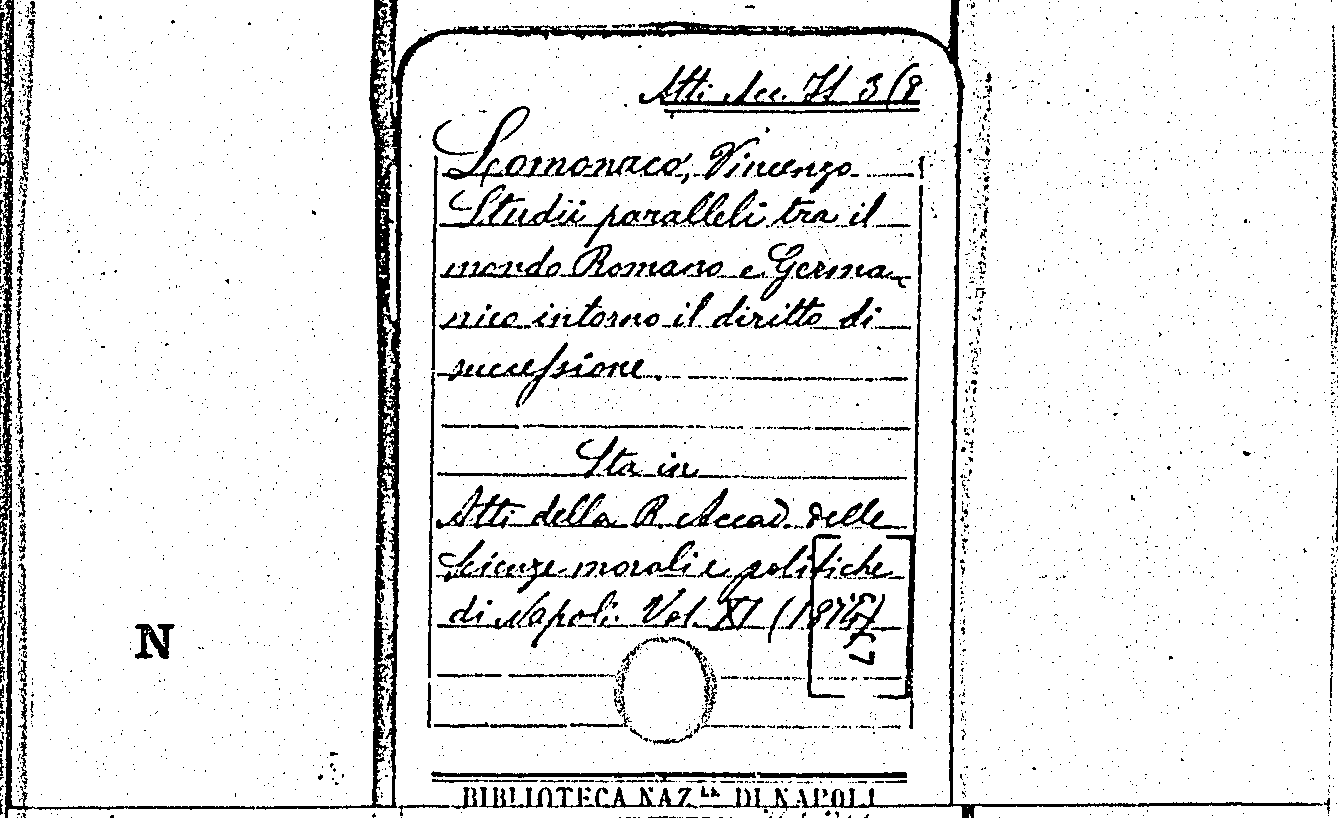 Atti Acc. II 3(8
Lomonaco, Vincenzo
Studii paralleli tra il
mondo Romano e Germa-
nico intorno il diritto di
successione.
Sta in
Atti della R. Accad. delle
Scienze morali e politiche
di Napoli. Vol. XI (1876)
N
BIBLIOTECA NAZ.LE DI NAPOLI